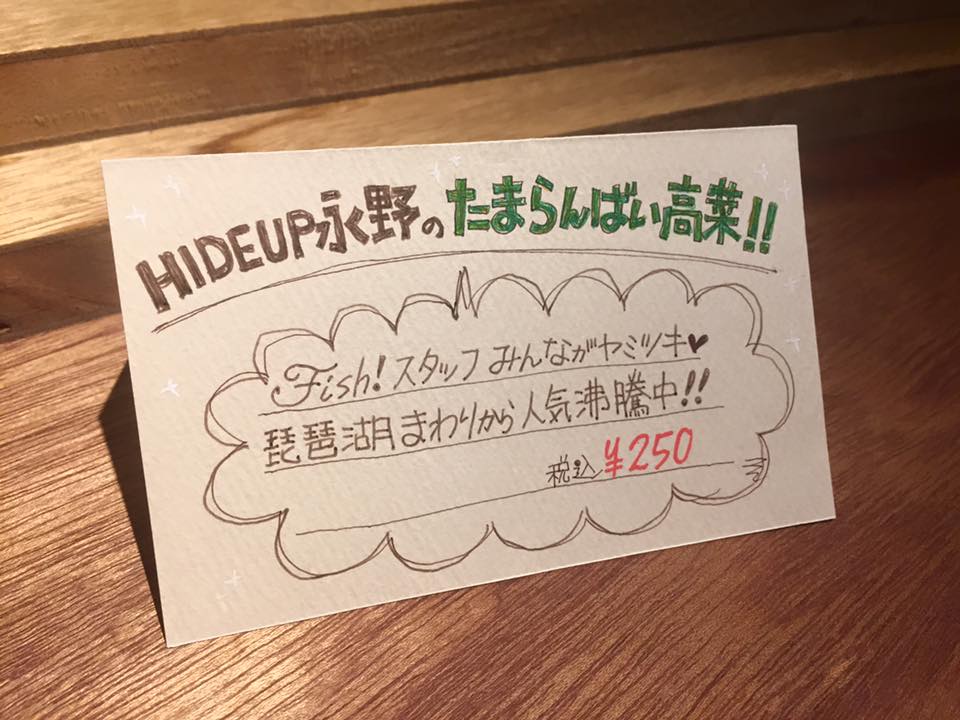 HIDEUP永野のたまらんばい高菜!!
Fish!スタッフみんながヤミツキ♥
琵琶湖まわりから人気沸騰中!!
税込¥250